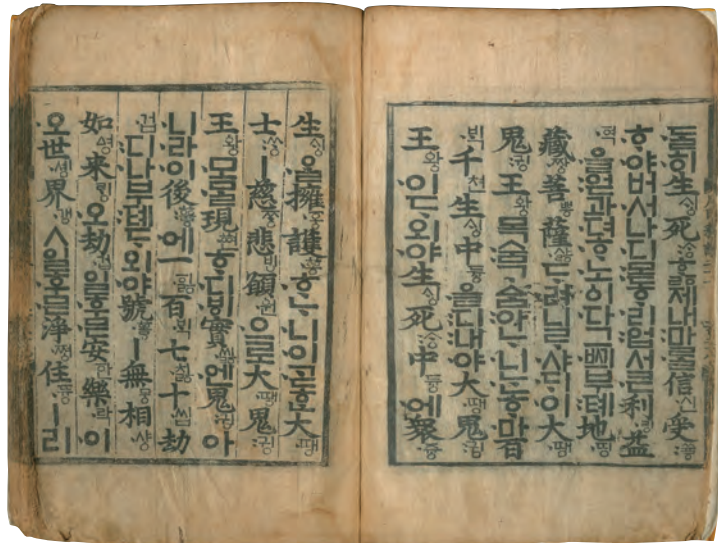 돌히生ᄉᆡᇰ死ᄉᆞᆼᄒᆞᇙ제내마ᄅᆞᆯ信신受쓔ᇢ
ᄒᆞ야버서나디몯ᄒᆞ리업서利링益
ᅙᅧᆨᄋᆞᆯ얻과뎌ᄒᆞ노이다ᄢᅴ부톄地띵
藏짱菩뽕薩사ᇙᄃᆞ려니ᄅᆞ샤ᄃᆡ이大땡
鬼귕王왕목숨ᄀᆞᅀᆞᆷ안니ᄂᆞᆫᄒᆞ마百
ᄇᆡᆨ千쳔生ᄉᆡᇰ中듀ᇰ을디내야大땡鬼귕
王왕이ᄃᆞ외야生ᄉᆡᇰ死ᄉᆞᆼ中듀ᇰ에衆쥬ᇰ
生ᄉᆡᇰ을擁ᅙᅩᇰ護ᅘᅩᆼᄒᆞᄂᆞ니이ᄀᆞᆮᄒᆞᆫ大땡
士ᄊᆞᆼㅣ慈ᄍᆞᆼ悲빙願ᅌᅯᆫ으로大땡鬼귕
王왕모ᄆᆞᆯ現ᅘᅧᆫᄒᆞ디ᄫᅵ實씨ᇙ엔鬼귕아
니라이後ᅘᅮᇢ에一ᅙᅵᇙ百ᄇᆡᆨ七치ᇙ十씹劫
겁디나부톄ᄃᆞ외야號ᅘᅩᇢㅣ無뭉相샤ᇰ
如ᅀᅧᆼ来ᄅᆡᆼ오劫겁일후믄安ᅙᅡᆫ樂락이
오世솅界갱ㅅ일후믄淨쪄ᇰ住뜡ㅣ리